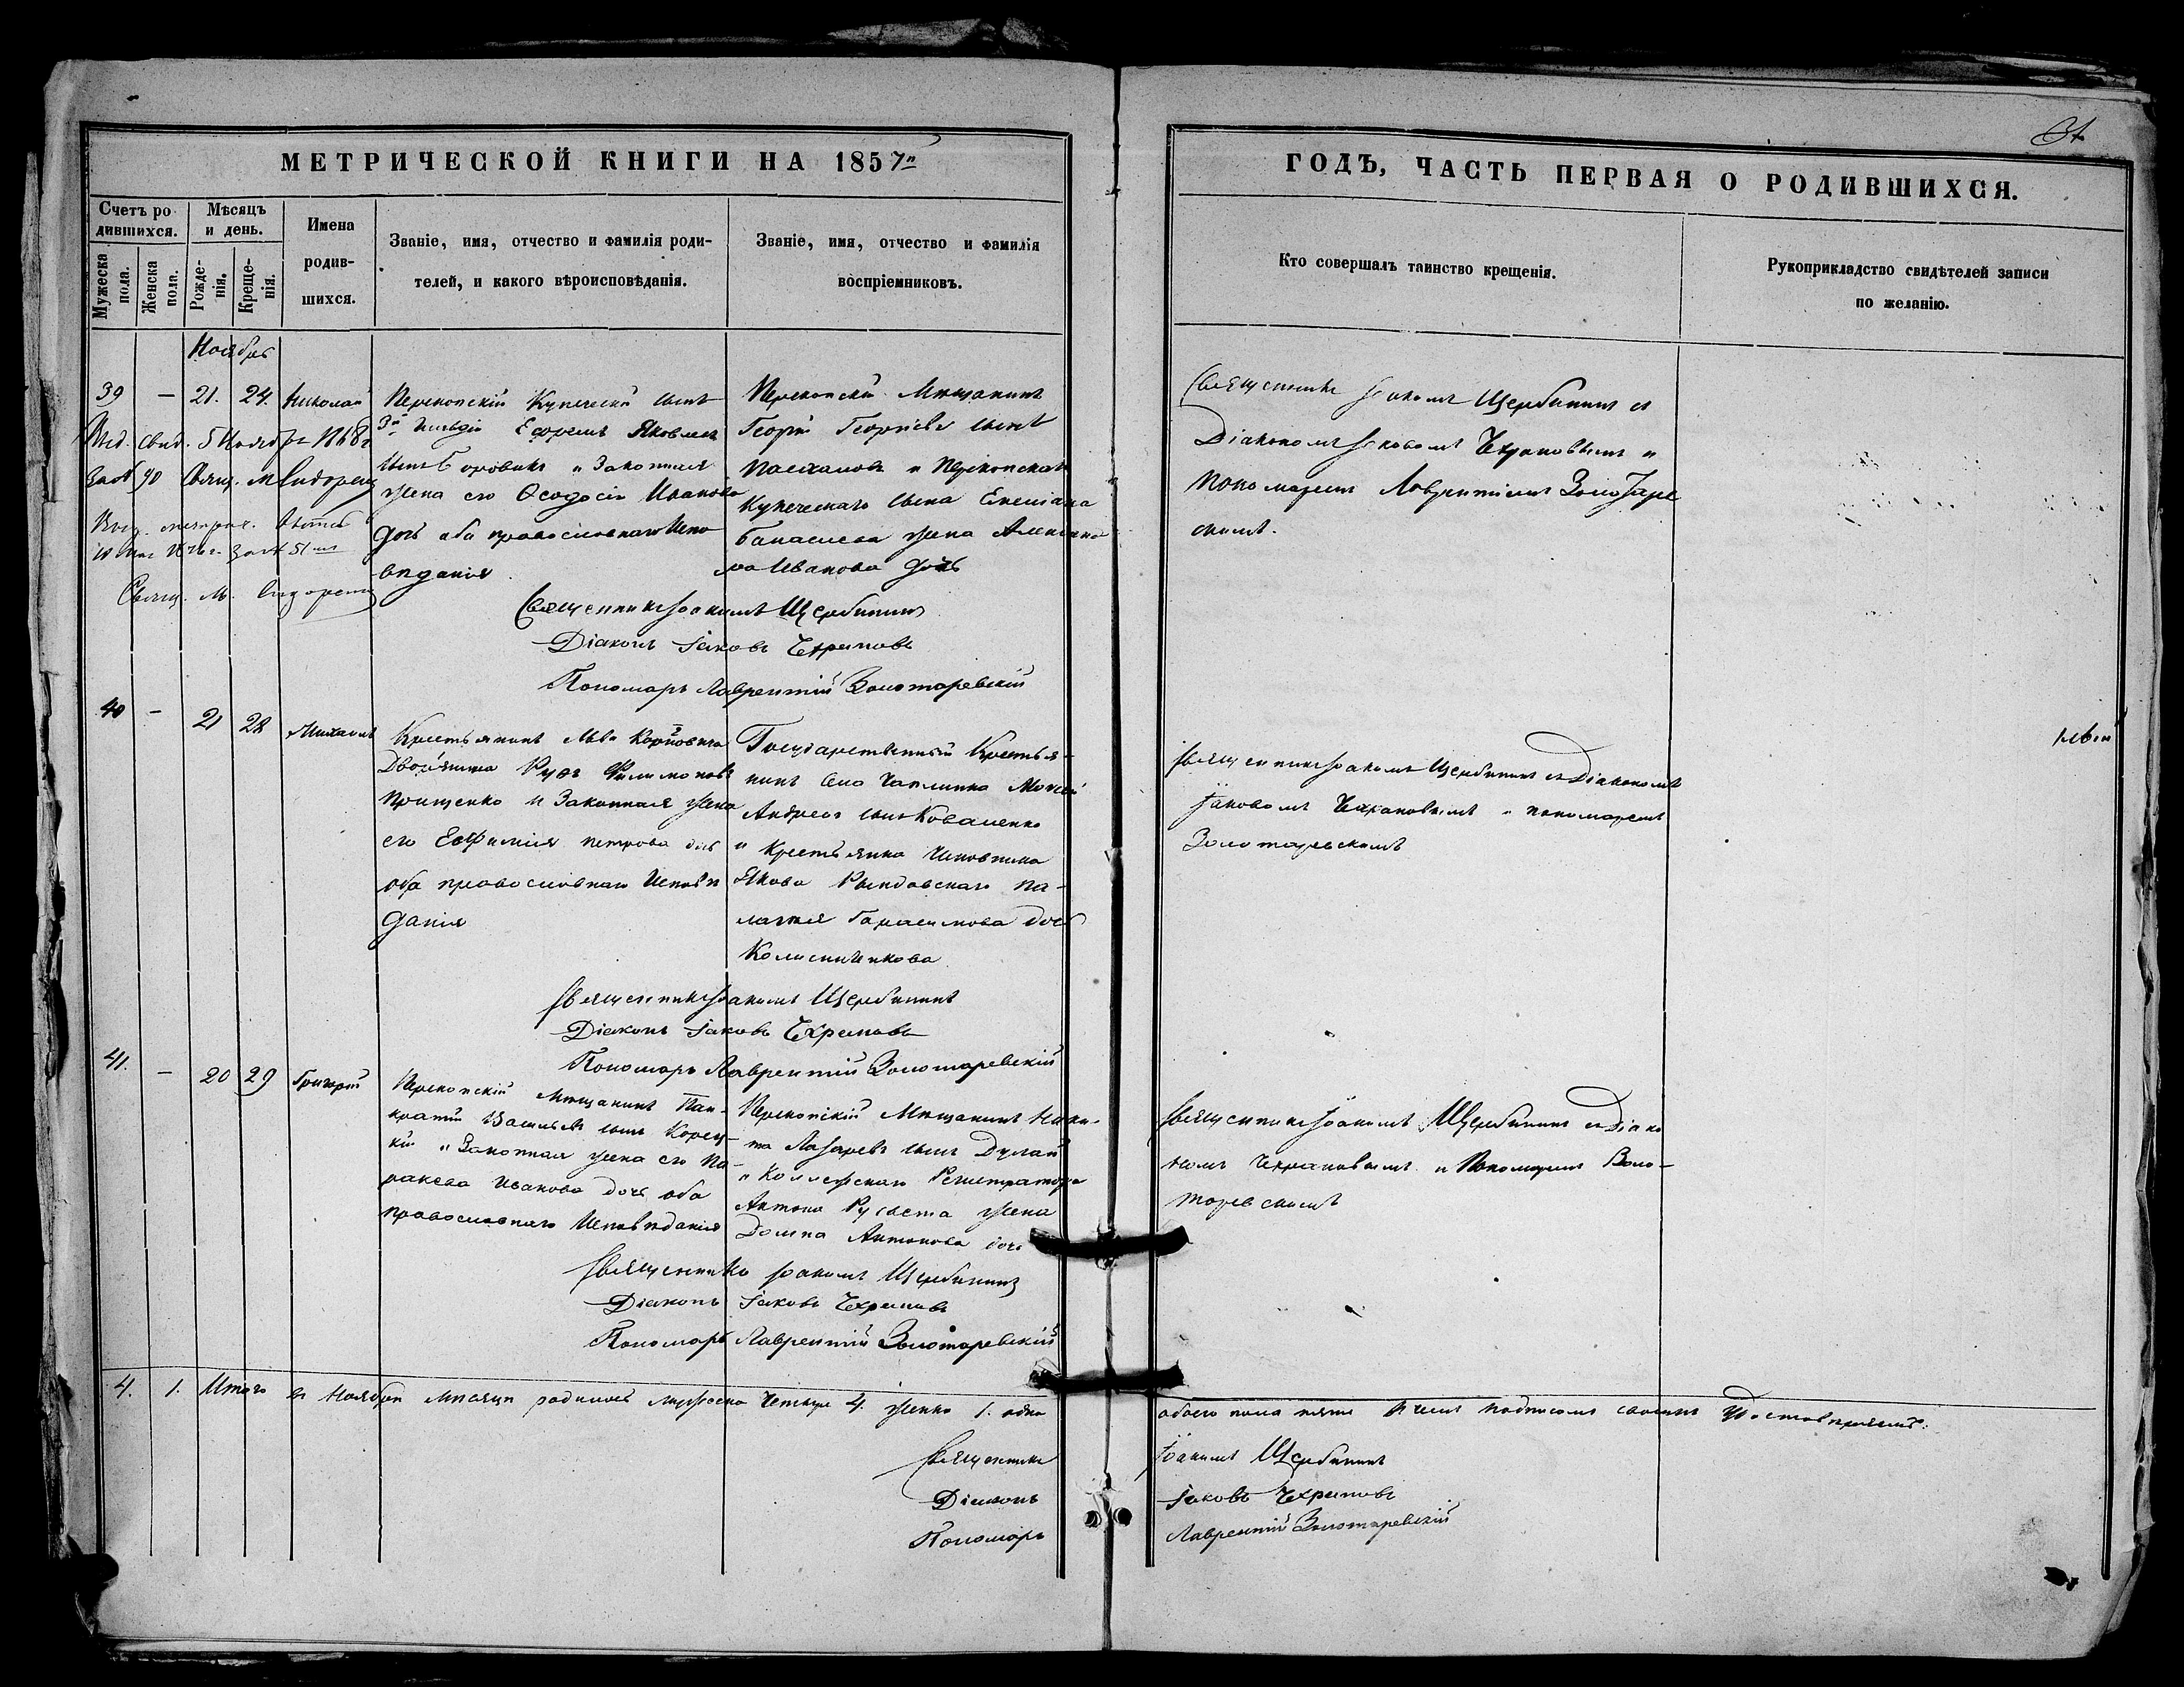 МЕТРИЧЕСКОЙ КНИГИ НА 1857й
ГОДЪ, ЧАСТЬ ПЕРВАЯ О РОДИВШИХСЯ.
Счетъ родившихся.
Мужеска пола.
Женска пола.
Мѣсяцъ и день.
Рожденія.
Крещенія.
Имена родившихся.
Званіе, имя, отчество и фамилія родителей, и какого вѣроисповѣданія.
Званіе, имя, отчество и фамилія воспріемниковъ.
Кто совершалъ таинство крещенія.
Рукоприкладство свидѣтелей записи по желанію.
Ноябрь
39 - 21. 24. Николай
Перекопскій Купеческій сынъ
3й гильдіи Ефремъ Яковлевъ
сынъ Боровикъ и Законная
жена его Ѳеодосія Иванова
дочь оба православнаго Испо
вѣданія
Перекопскій Мѣщанинъ
Георгій Георгіевъ сынъ
и Перекопскаго
Купеческаго сына
жена
Иванова дочь
Священникъ Іоакимъ Щербининъ съ
Діакономъ Іаковомъ Чехрановымъ и
Пономаремъ Лаврентіемъ Золотарев
скимъ.
Выд. свид. 5 Ноября 1868г
за № 90 Свящ. М Сидоренк
Свящ. М. Сидоренк
Священникъ Іоакимъ Щербининъ
Діаконъ Іаковъ Чехрановъ
Пономарь Лаврентій Золотаревскій
40 - 21 28 Михаилъ
Крестьянинъ Льва
Дворянина Руфъ Филимоновъ
Прищенко и Законная жена
его Евфимія Петрова дочь
оба православнаго Исповѣ
данія
Государственный Крестья-
нинъ Села Чаплинка Моисей
Андреевъ сынъ Коваленко
и Крестьянка Чиновника
Якова Рындовскаго Пе-
лагея Гарасимова дочь
Колисниченкова
Священникъ Іоакимъ Щербининъ съ Діакономъ
Іаковомъ Чехрановымъ и пономаремъ
Золотаревскимъ
Священникъ Іоакимъ Щербининъ
Діаконъ Іаковъ Чехрановъ
Пономарь Лаврентій Золотаревскій
41. - 20 29 Григорій
Перекопскій Мѣщанинъ Пан-
кратій Васильевъ сынъ Корец-
кій и Законная жена его Па-
раскева Иванова дочь оба
православнаго Исповѣданія
Перекопскій Мѣщанинъ Ники-
та Лазаревъ сынъ Дулай
и Коллежскаго Регистратора
Антона жена
Домна Антонова дочь
Священникъ Іоакимъ Щербининъ съ Діако
номъ Чехрановымъ и Пономаремъ Золо-
таревскимъ
Священникъ Іоакимъ Щербининъ
Діаконъ Іаковъ Чехрановъ
Пономарь Лаврентій Золотаревскій
4. 1. Итого въ Ноябрѣ мѣсяцѣ родилось мужеска Четыре 4. женка 1. одна
обоего пола пять въ чемъ подписомъ своимъ Удостовѣряемъ.
Священникъ Іоакимъ Щербининъ
Діаконъ Іаковъ Чехрановъ
Пономарь Лаврентій Золотаревскій